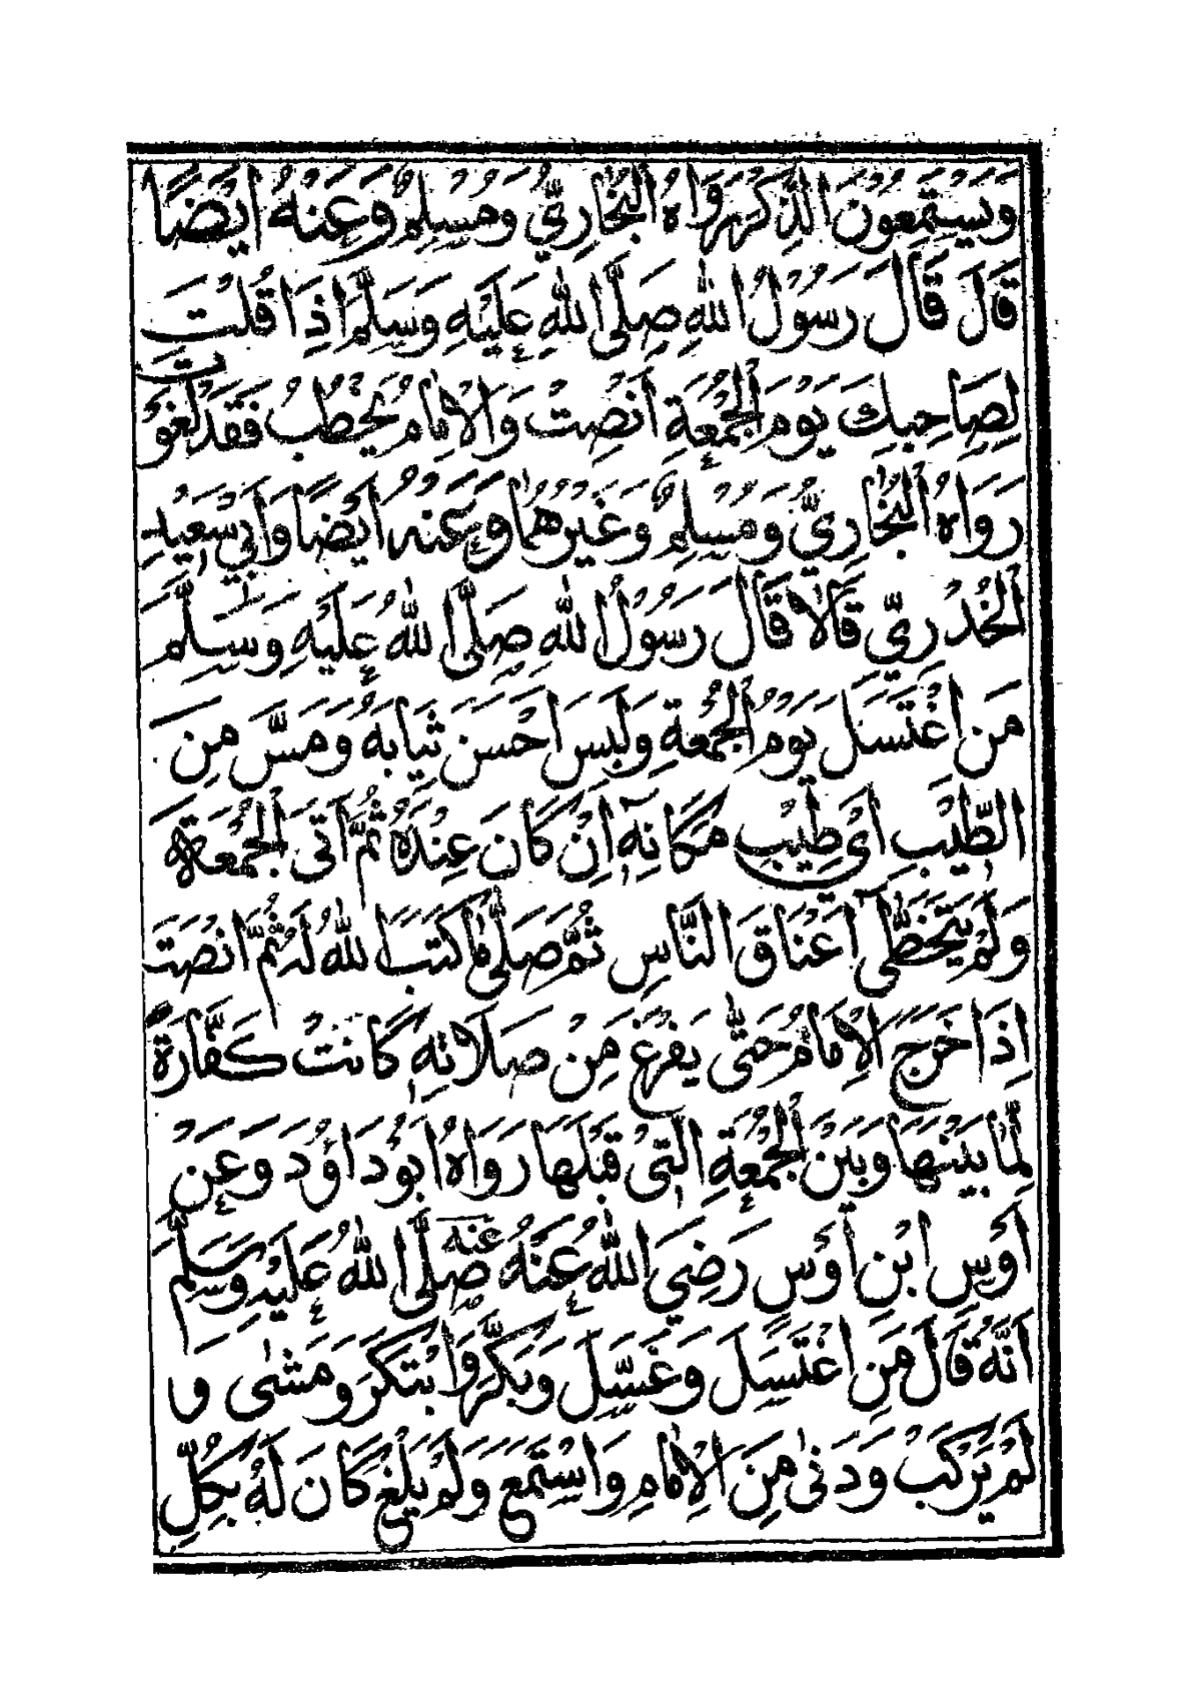 وَيَسْتَمِعُونَ الذِّكْرَ رَوَاهُ الْبُخَارِيُّ وَمُسْلِمٌ وَعَنْهُ اَيْضًا
قَالَ قَالَ رَسُوْلُ اللهِ صَلَّى اللهِ عَلَيْهِ وَسَلَّمَ اِذَا قُلْتَ
لِصَاحِبِكَ يَوْمَ الْجُمُعَةِ اَنْصِتْ وَالْاِمَامُ يَخْطُبُ فَقَدْ لَغَوْتَ
رَوَاهُ الْبُخَارِيُّ وَمُسْلِمٌ وَغَيْرُهُمَا وَعَنْهُ اَيْضًا وَاَبِيْ سَعِيْدِ
الْخُدْرِيِّ قَالَا قَالَ رَسُوْلُ اللهِ صَلَّى اللهُ عَلَيْهِ وَسَلَّمَ
مَنِ اغْتَسَلَ يَوْمَ الْجُمُعَةِ وَلَبِسَ اَحْسَنَ ثِيَابِهُ وَمَسَّ مِنَ
الطِّيْبِ اَيْ طِيْبِ مَكَانِهِ اِنْ كَانَ عِنْدَهُ ثُمَّ اَتَى الْجُمُعَةَ
وَلَمْ يَتَخَطَّى اَعْنَاقَ النَّاسِ ثُمَّ صَلَّى مَا كَتَبَ اللهُ لَهُ ثُمَّ اَنْصَتَ
اِذَا خَرَجَ الْاِمَامُ حَتَّى يَفْرُغَ مِنْ صَلَاتِهِ كَانَتْ كَفَّارَةً
لِمَا بَيْنَهَا وَبَيْنَ الْجُمُعَةِ الَّتِيْ قَبْلَهَا رَوَاهُ اَبُوْ دَاوُدَ وَعَنْ
اَوْسِ ابْنِ اَوْسٍ رَضِيَ اللهُ عَنْهُ عنه صَلَّى اللهُ عَلَيْهِ وَسَلَّمَ
اَنَّهُ قَالَ مَنِ اغْتَسَلَ وَغَسَّلَ وَبَكَّرَ وَابْتَكَرَ وَمَشَى وَ
لَمْ يَرْكَبْ وَدَنَى مِنَ الْاِمَامِ وَاسْتَمَعَ وَلَمْ يَلْغَ كَانَ لَهُ بِكُلِّ